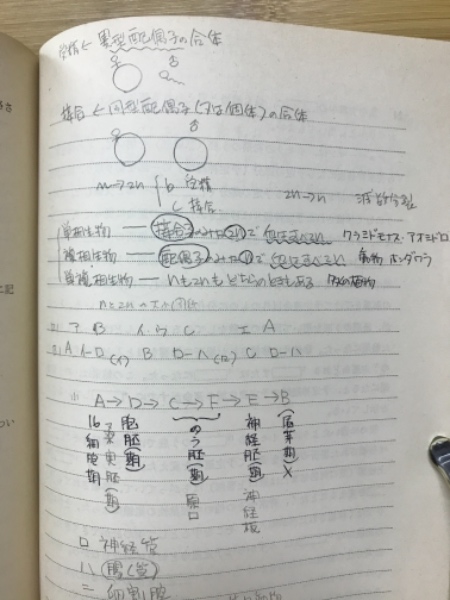 受精 ← 異型配偶子の合体
♀ ♂
接合 ← 同型配偶子(又は個体)の合体
♀ ♂
n→2n { b 受精
c 接合
2n→n 減数分裂
単相生物 — 接合子のみが2nで 他はすべてn クラミドモナス・アオミドロ
複相生物 — 配偶子のみがnで 他はすべて2n 動物 ホンダワラ
単複相生物 — nも2nもどちらのときもある
ア B イ ウ C エ A
A イ-D (イ) B ロ-ハ (ロ) C ロ-ハ
A→D→C→F→E→B
16細胞期
桑実胚(期)
胞胚(期)
のう胚(期)
原口
神経胚(期)
神経板
尾芽期 ×
ロ 神経管
ハ 腸(管)
ニ 卵割腔